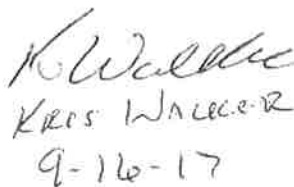 K. Walker
KRIS WALKER
9-16-17